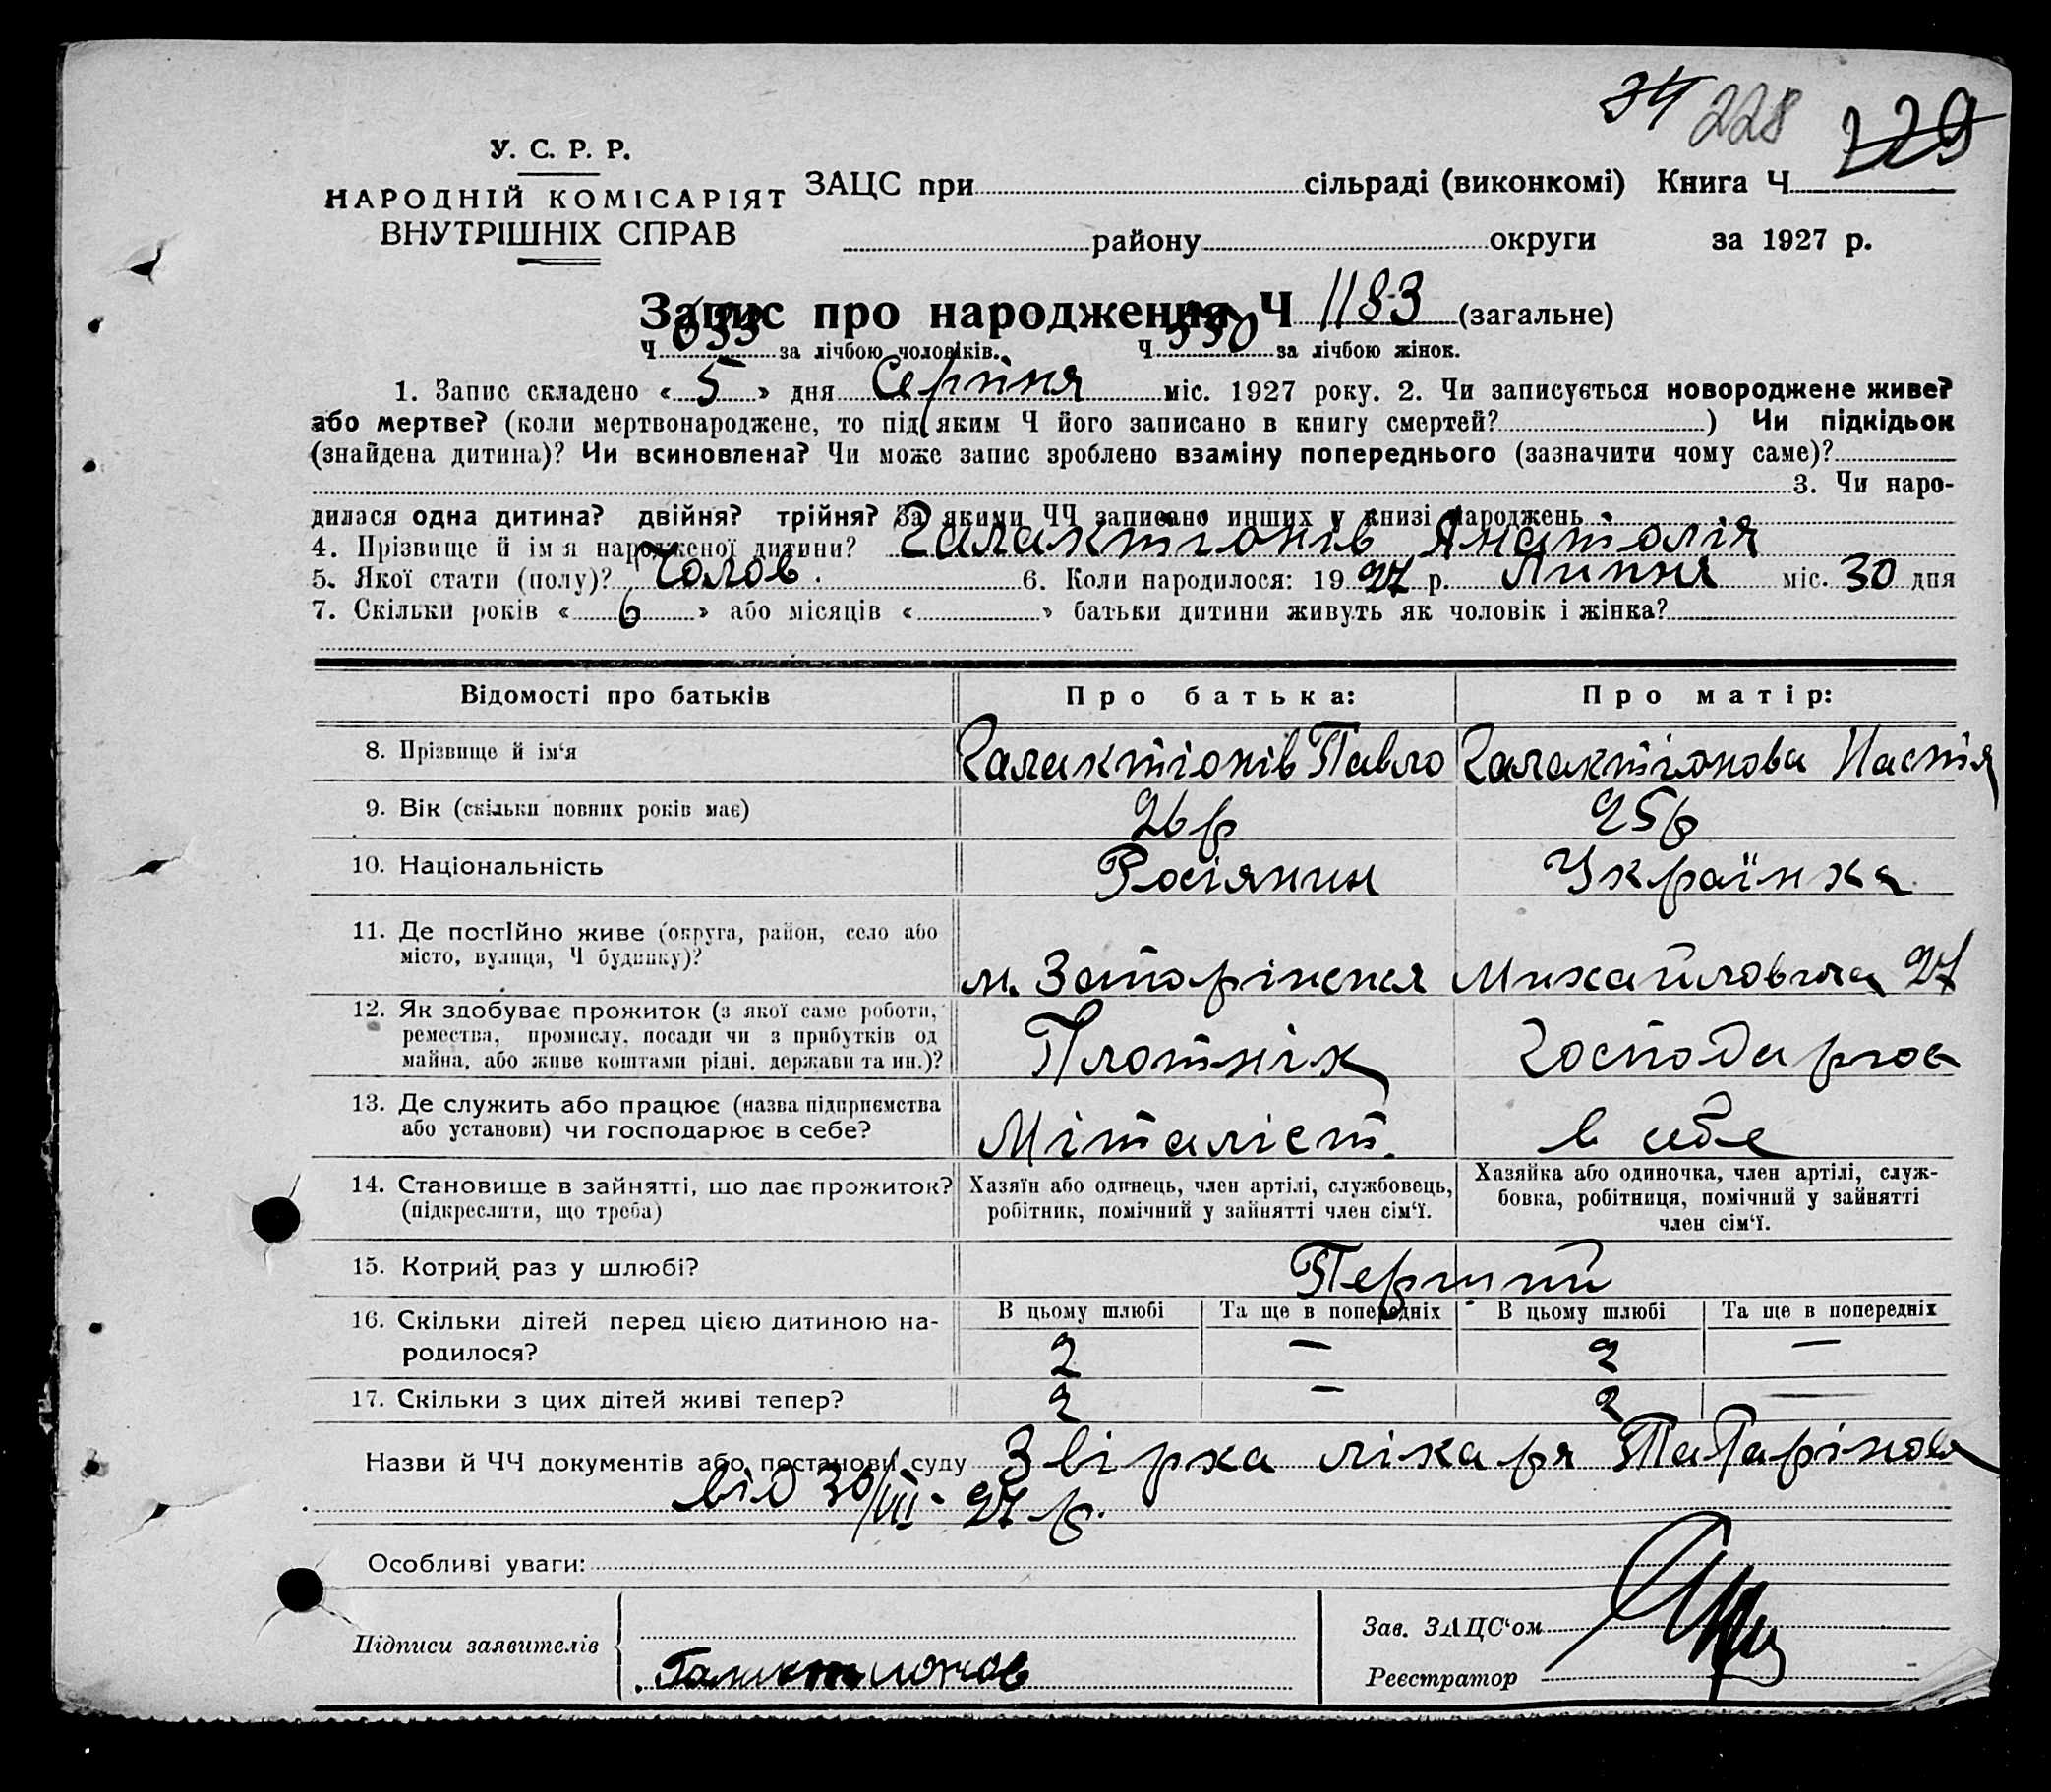 34 228 229
У. С. Р. Р.
НАРОДНІЙ КОМІСАРІЯТ
ВНУТРІШНІХ СПРАВ
ЗАЦС при сільраді (виконкомі) Книга Ч
району округи за 1927 р.
Запис про народження Ч 1183 (загальне)
Ч 633 за лічбою чоловіків. Ч 550 за лічбою жінок.
1. Запис складено « 5 » дня Серпня міс. 1927 року. 2. Чи записується новороджене живе?
або мертве? (коли мертвонароджене, то під яким Ч його записано в книгу смертей? ) Чи підкідьок
(знайдена дитина)? Чи всиновлена? Чи може запис зроблено взаміну попереднього (зазначити чому саме)?
3. Чи наро-
дилася одна дитина? двійня? трійня? За якими ЧЧ записано инших у книзі народжень
4. Прізвище й ім'я народженої дитини? Галактіонів Анатолія
5. Якої стати (полу)? Чолов. 6. Коли народилося: 1927 р. Липня міс. 30 дня
7. Скільки років « 6 » або місяців « » батьки дитини живуть як чоловік і жінка?
Відомості про батьків Про батька: Про матір:
8. Прізвище й ім'я Галактіонів Павло Галактіонова Настя
9. Вік (скільки повних років має) 26 р 25 р
10. Національність Росіянин Українка
11. Де постійно живе (округа, район, село або
місто, вулиця, Ч будинку)? м. Запоріжжя Михайловська 27
12. Як здобуває прожиток (з якої саме роботи,
ремества, промислу, посади чи з прибутків од
майна, або живе коштами рідні, держави та ин.)? Плотнік Господарює
13. Де служить або працює (назва підприємства
або установи) чи господарює в себе? Міталіст. в себе
14. Становище в зайнятті, що дає прожиток?
(підкреслити, що треба)
Хазяїн або одинець, член артілі, службовець,
робітник, помічний у зайнятті член сім'ї.
Хазяйка або одиночка, член артілі, служ-
бовка, робітниця, помічний у зайнятті
член сім'ї.
15. Котрий раз у шлюбі? Перший
В цьому шлюбі Та ще в попередніх В цьому шлюбі Та ще в попередніх
16. Скільки дітей перед цією дитиною на-
родилося? 2 — 2 —
17. Скільки з цих дітей живі тепер? 2 — 2 —
Назви й ЧЧ документів або постанови суду Звірка лікаря Татарінова
від 30/VII - 27 р.
Особливі уваги:
Підписи заявителів
Галактионов
Зав. ЗАЦС'ом
Реєстратор